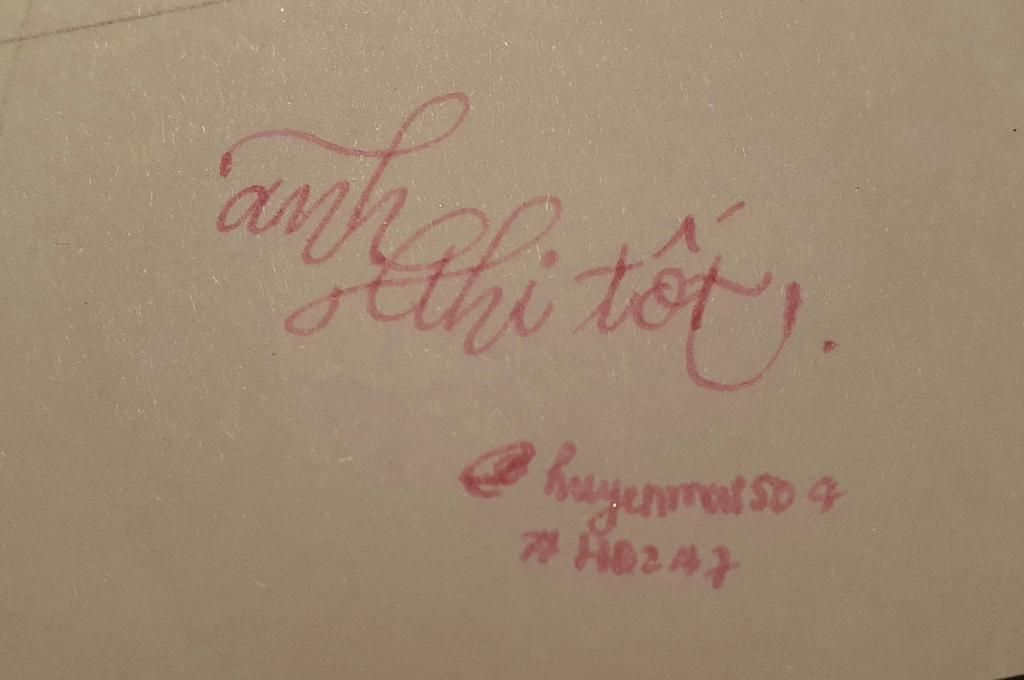 anh
thi tốt!
@huyenmai504
#HD247